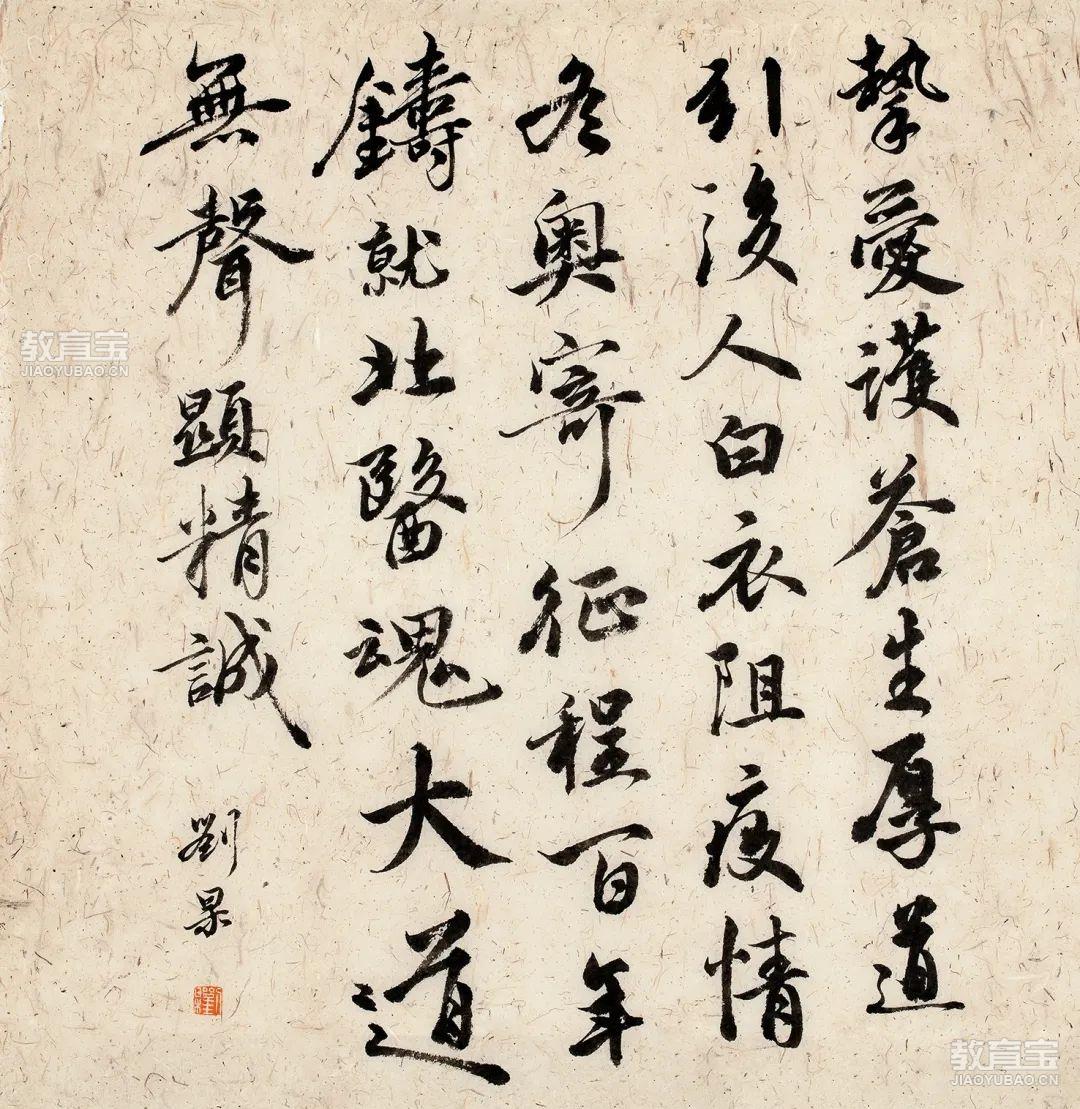 摯愛護蒼生厚道
引後人白衣阻疫情
冬奧寄征程百年
鑄就北醫魂大道
無聲顯精誠
劉
教育宝
JIAOYUBAO.CN
教育宝
JIAOYUBAO.CN